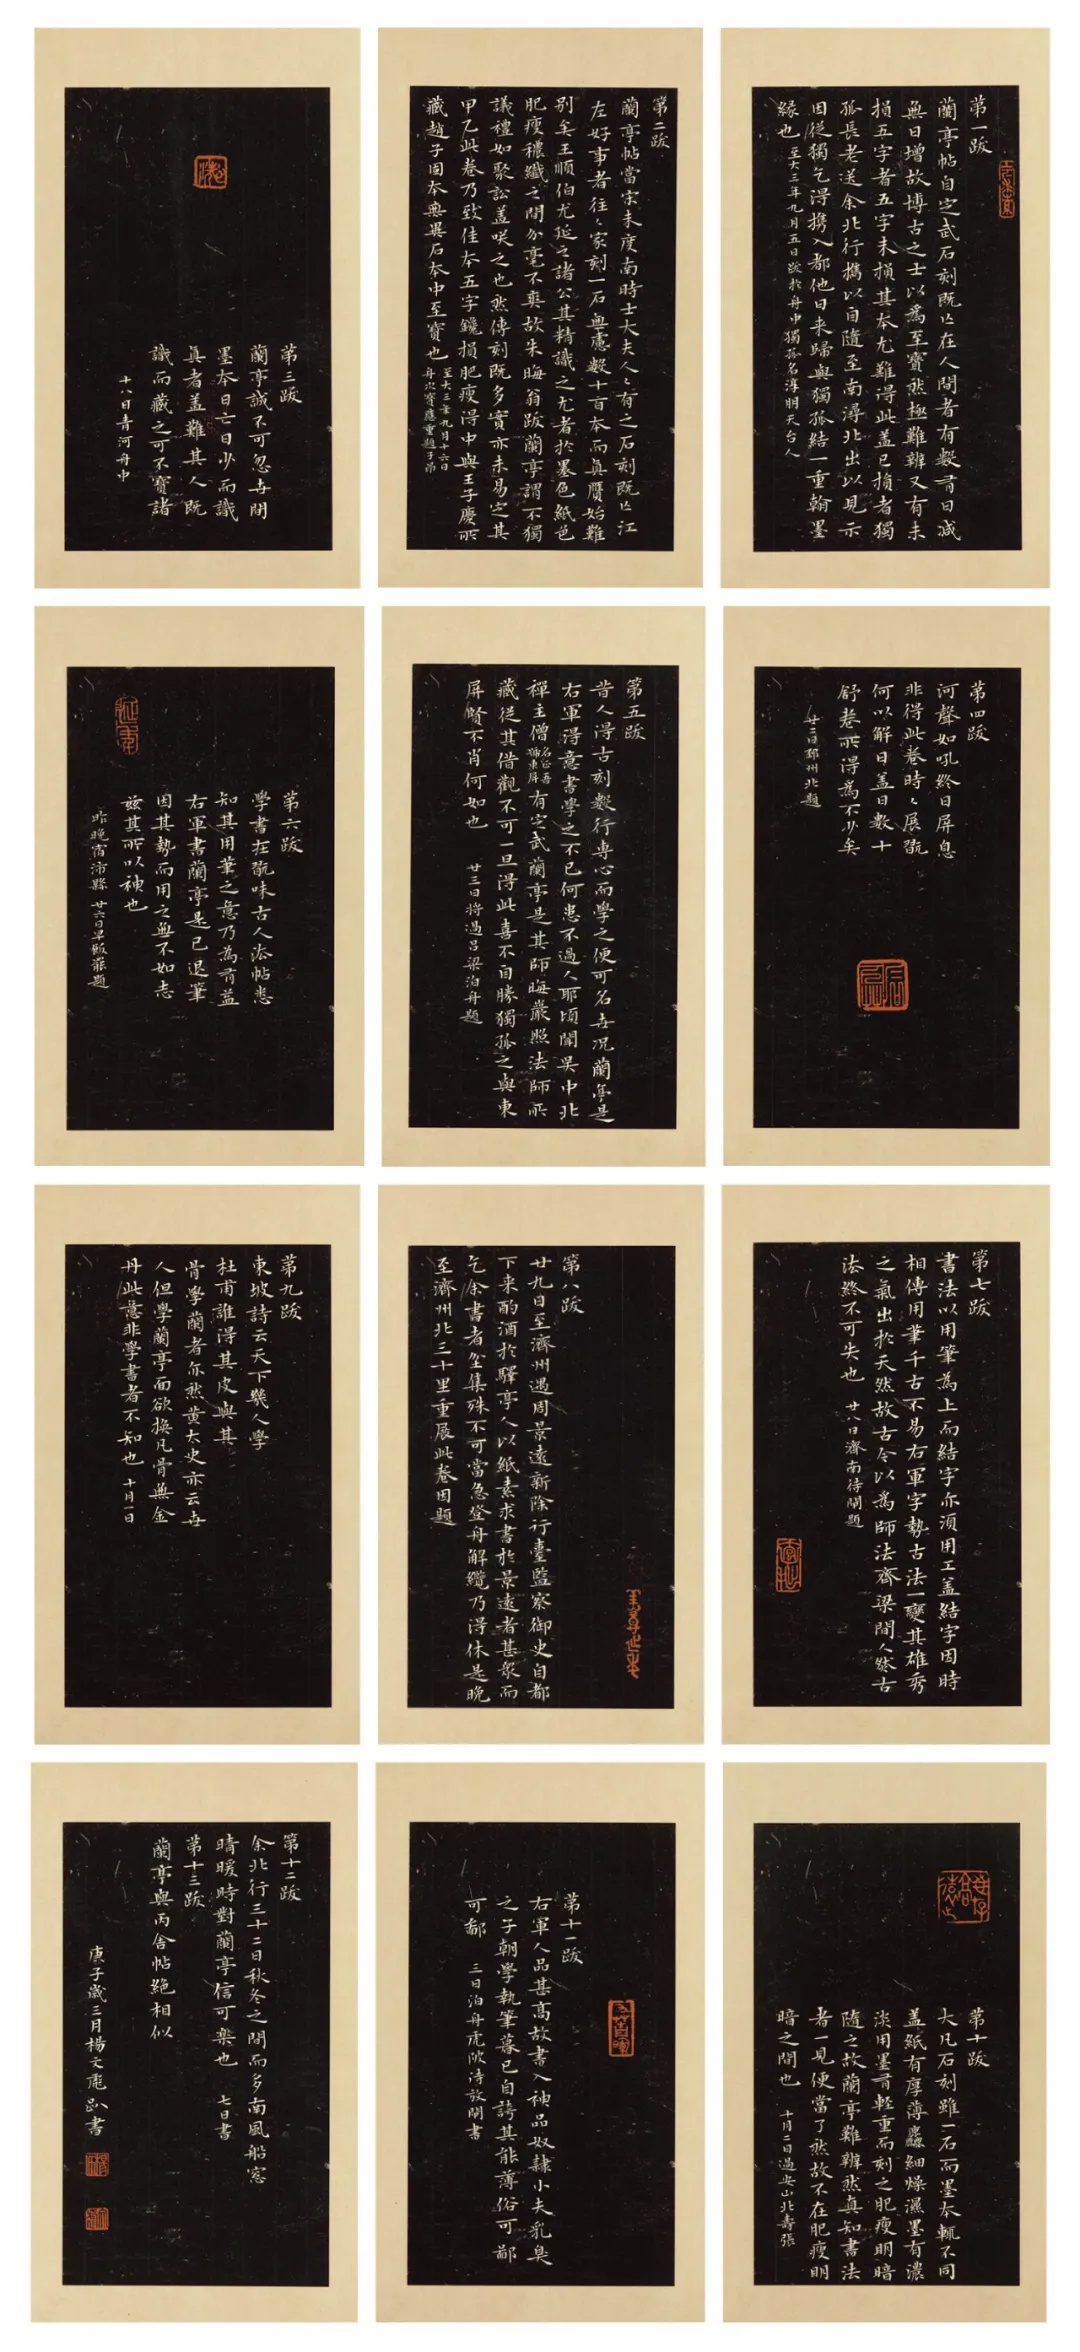 第一跋
蘭亭帖自定武石刻既亡在人間者有數有日減
無日增故博古之士以為至寶然極難辨又有未
損五字者五字未損其本尤難得此盖已損者獨
孤長老送余北行攜以自隨至南潯北出以見示
因從獨乞得携入都他日来歸與獨孤結一重翰墨
緣也 至大三年九月五日跋於舟中獨孤名淳明天台人
第二跋
蘭亭帖當宋未度南時士大夫人人有之石刻既亡江
左好事者往往家刻一石無慮數十百本而真贋始難
別矣王順伯尤延之諸公其精識之尤者於墨色紙色
肥瘦穠纖之間分毫不爽故朱晦翁跋蘭亭謂不獨
議禮如聚訟盖咲之也然傳刻既多實亦未易定其
甲乙此卷乃致佳本五字鑱損肥瘦得中與王子慶所
藏趙子固本無異石本中至寶也 至大三年九月十六日
舟次寶應重題子昂
第三跋
蘭亭誠不可忽世間
墨本日亡日少而識
真者盖難其人既
識而藏之可不寶諸
十八日清河舟中
第四跋
河聲如吼終日屏息
非得此卷時々展翫
何以解日盖日數十
舒卷所得為不少矣
廿二日邳州北題
第五跋
昔人得古刻數行專心而學之便可名世况蘭亭是
右軍得意書學之不已何患不過人耶頃聞吳中北
禪主僧名正吾號東屏有定武蘭亭是其師晦巖照法師所
藏從其借觀不可一旦得此喜不自勝獨孤之與東
屏賢不肖何如也 廿三日將過吕梁泊舟題
第六跋
學書在翫味古人法帖悉
知其用筆之意乃為有益
右軍書蘭亭是已退筆
因其勢而用之無不如志
兹其所以神也
昨晚宿沛縣 廿六日早飯罷題
第七跋
書法以用筆為上而結字亦須用工盖結字因時
相傳用筆千古不易右軍字勢古法一變其雄秀
之氣出於天然故古今以為師法齊梁間人然古
法終不可失也 廿八日濟南待閘題
第八跋
廿九日至濟州遇周景遠新除行臺監察御史自都
下来酌酒於驛亭人以紙素求書於景遠者甚衆而
乞余書者坌集殊不可當急登舟解纜乃得休是晚
至濟州北三十里重展此卷因題
第九跋
東坡詩云天下幾人學
杜甫誰得其皮與其
骨學蘭者亦然黄太史亦云世
人但學蘭亭面欲換凡骨無金
丹此意非學書者不知也 十月一日
第十跋
大凡石刻雖一石而墨本輒不同
盖紙有厚薄麤細燥濕墨有濃
淡用墨有輕重而刻之肥瘦明暗
隨之故蘭亭難辨然真知書法
者一見便當了然故不在肥瘦明
暗之間也 十月二日過安山北壽張
第十一跋
右軍人品甚高故書入神品奴隸小夫乳臭
之子朝學執筆暮已自誇其能薄俗可鄙
可鄙 三日泊舟虎陂待放閘書
第十二跋
余北行三十二日秋冬之間而多南風船窓
晴暖時對蘭亭信可樂也 七日書
第十三跋
蘭亭與丙舍帖絶相似
庚子歲三月楊文
書